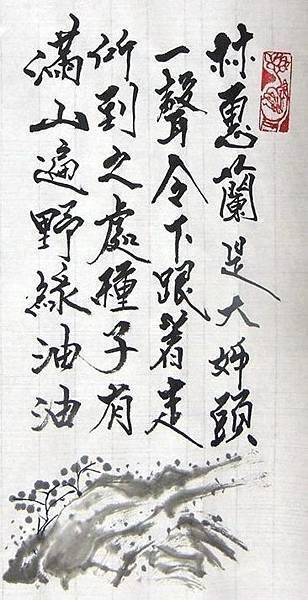 林惠蘭是大姊頭
一聲令下跟着走
所到之處種子有
滿山遍野綠油油